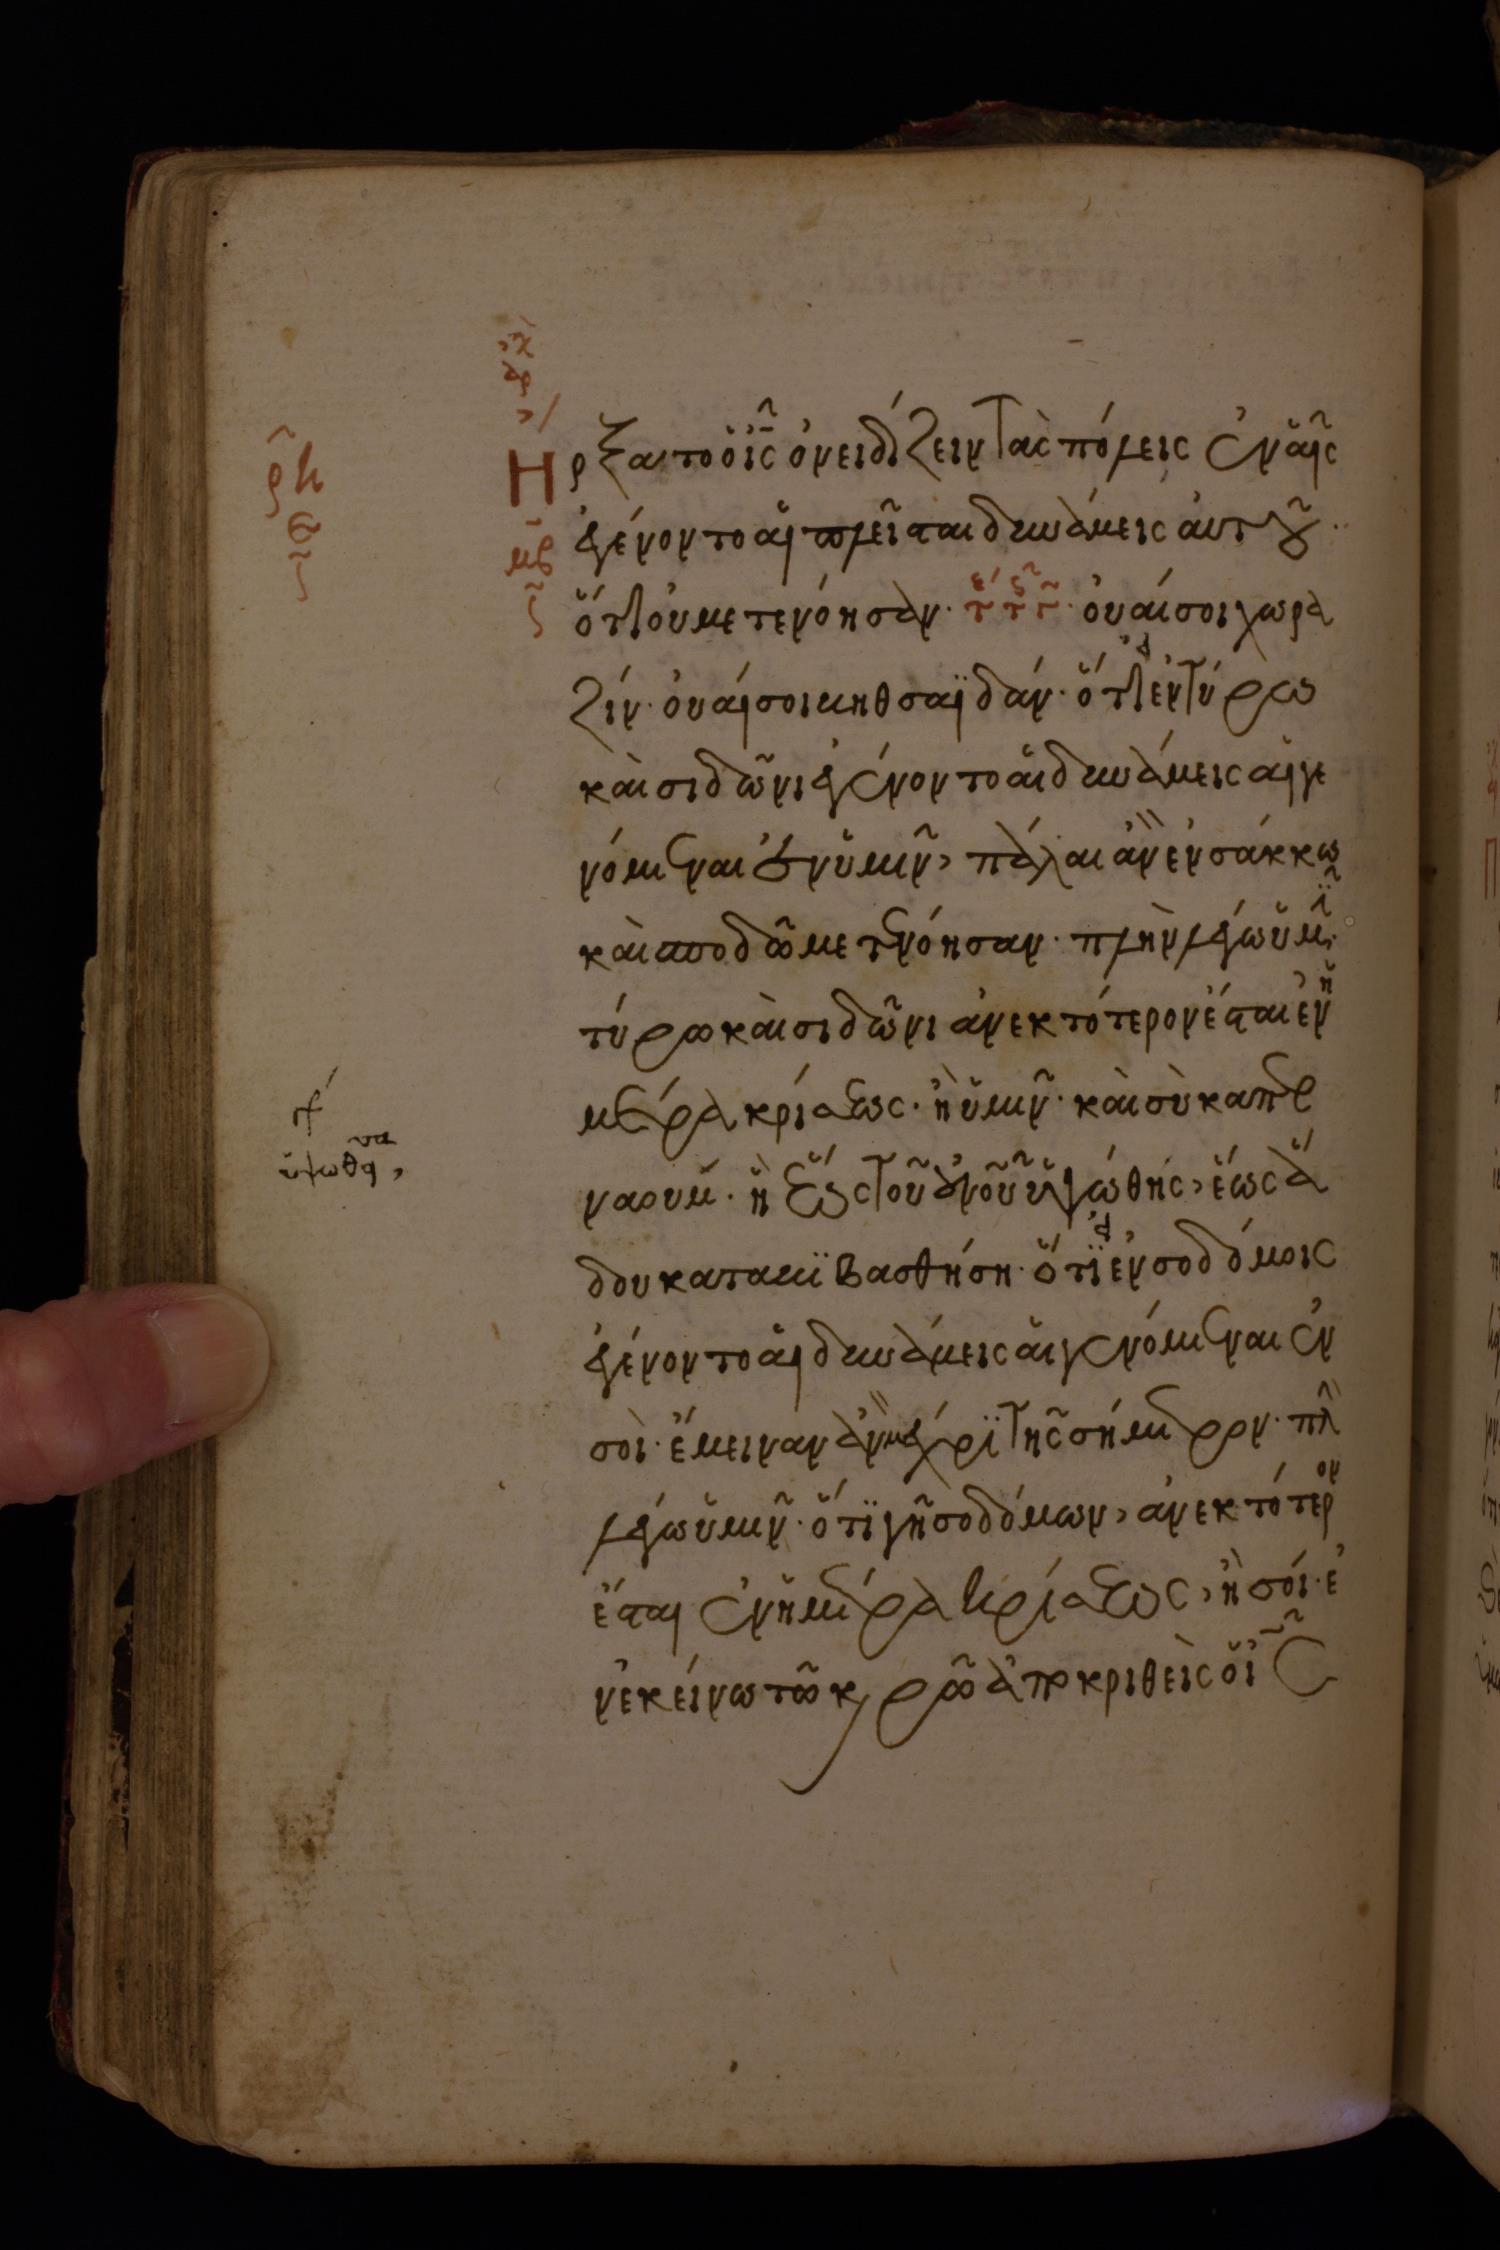 Ἤρξατο ὁ ἰς ὀνειδίζειν τὰς πόλεις ἐν αἷς
ἐγένοντο αἱ πλεῖσται δυνάμεις αὐτοῦ·
ὅτι οὐ μετενόησαν· οὐαί σοι χωρα
ζίν· οὐαί σοι βηθσαϊδάν· ὅτι εἰ ἐν τύρω
καὶ σιδῶνι ἐγένοντο αἱ δυνάμεις αἱ γε
νόμεναι ἐν ὑμῖν, πάλαι ἂν ἐν σάκκω
καὶ σποδῶ μετενόησαν· πλὴν λέγω ὑμῖν
τύρω καὶ σιδῶνι ἀνεκτότερον ἔσται ἐν ἡ
μέρα κρίσεως· ἢ ὑμῖν· καὶ σὺ καπερ
ναούμ· ἡ ἕως τοῦ οὐνοῦ ὑψώθης, ἕως ἅ
δου καταβιβασθήση· ὅτι εἰ ἐν σοδόμοις
ἐγένοντο αἱ δυνάμεις αἱ γενόμεναι ἐν
σοί· ἔμειναν ἂν μέχρι τῆς σήμερον· πλὴν
λέγω ὑμῖν· ὅτι γῆ σοδόμων, ἀνεκτότερον
ἔσται ἐν ἡμέρα κρίσεως, ἢ σοί· ἐ
ν ἐκείνω τῶ καιρῶ ἀποκριθεὶς ὁ ἰς